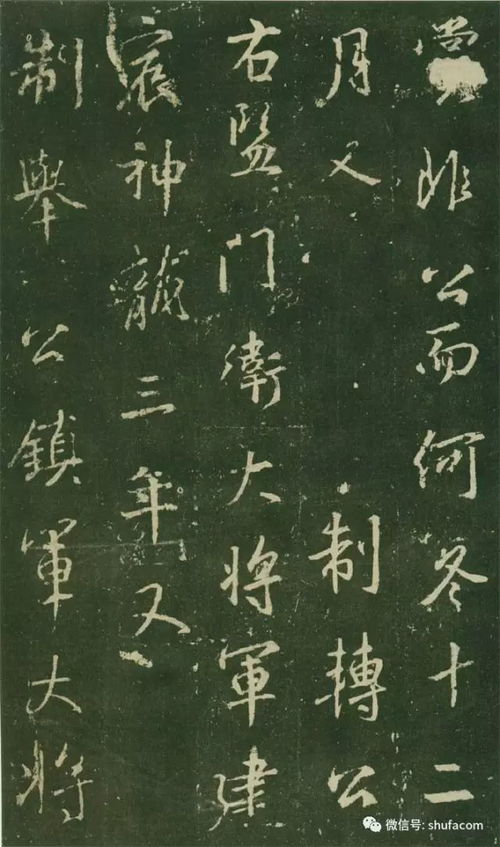 非公而何冬十二
月又 制轉公
右監門衛大將軍建
宸神龍三年又
制舉公鎮軍大將
微信号: shufacom